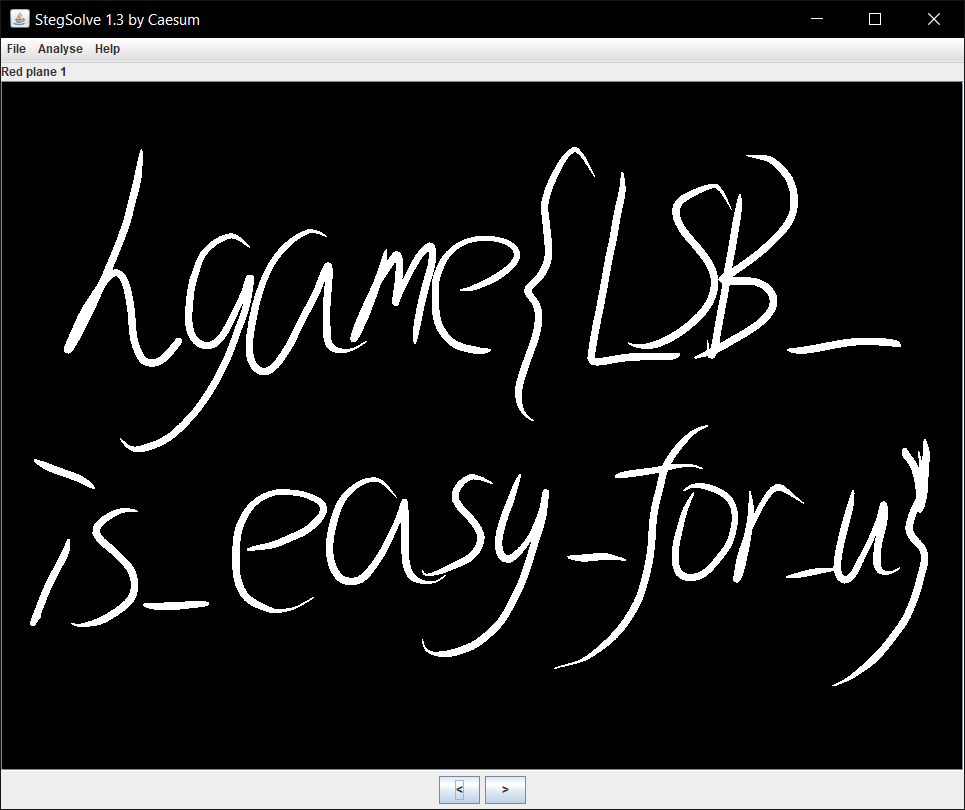 StegSolve 1.3 by Caesum
File Analyse Help
Red plane 1
hgame{LSB_
is_easy_for_u}
< >